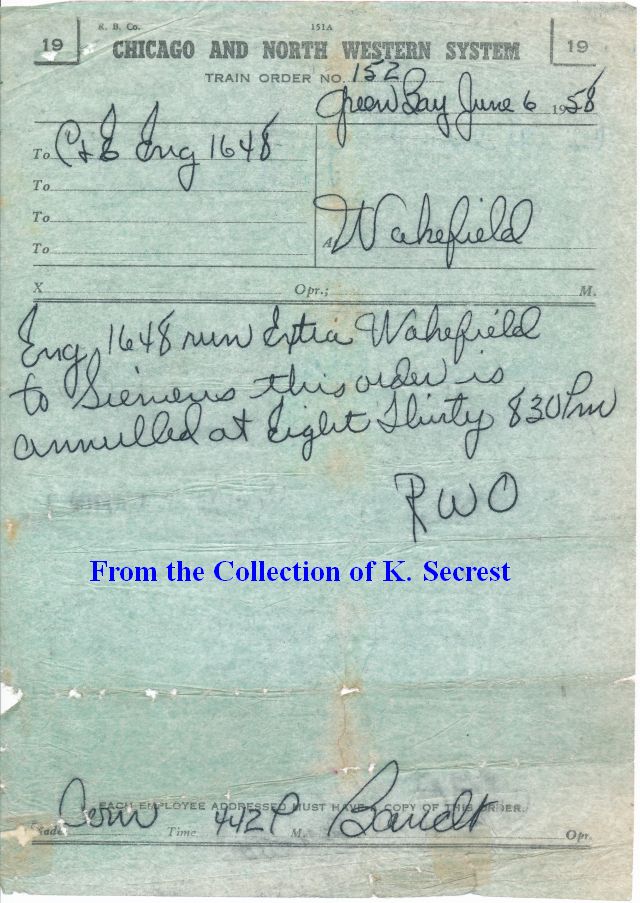 R. B. Co. 151A
19 CHICAGO AND NORTH WESTERN SYSTEM 19
TRAIN ORDER NO. 152
Green Bay June 6 1958
To C&E Eng 1648
To
To
To
At Wakefield
X Opr.; M.
Eng 1648 run Extra Wakefield
to Siemens this order is
annulled at Eight Thirty 830 Pm
RWO
From the Collection of K. Secrest
EACH EMPLOYEE ADDRESSED MUST HAVE A COPY OF THIS ORDER.
Made Com Time 442 P M. Opr.